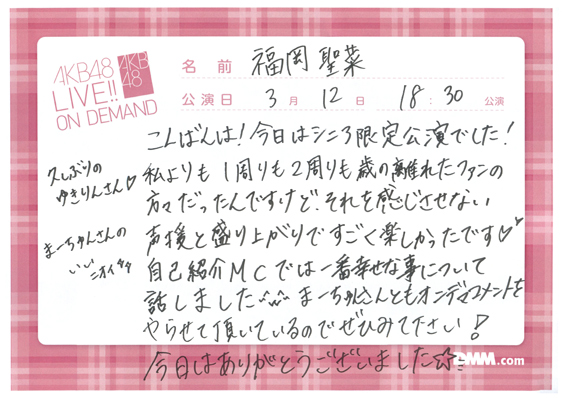 AKB48
LIVE!!
ON DEMAND
AKB
48
名前 福岡聖菜
公演日 3月 12日 18:30 公演
こんばんは！今日はシニア限定公演でした！
私よりも1周りも2周りも歳の離れたファンの
方々だったんですけど、それを感じさせない
声援と盛り上がりですごく楽しかったです♡
自己紹介MCでは一番幸せな事について
話しました
まーちゃんさんともオンデマコメントを
やらせて頂いているのでぜひみて下さい！
今日はありがとうございました☆
久しぶりの
ゆきりんさん♡
まーちゃんさんの
いい
ニオイ
DMM.com